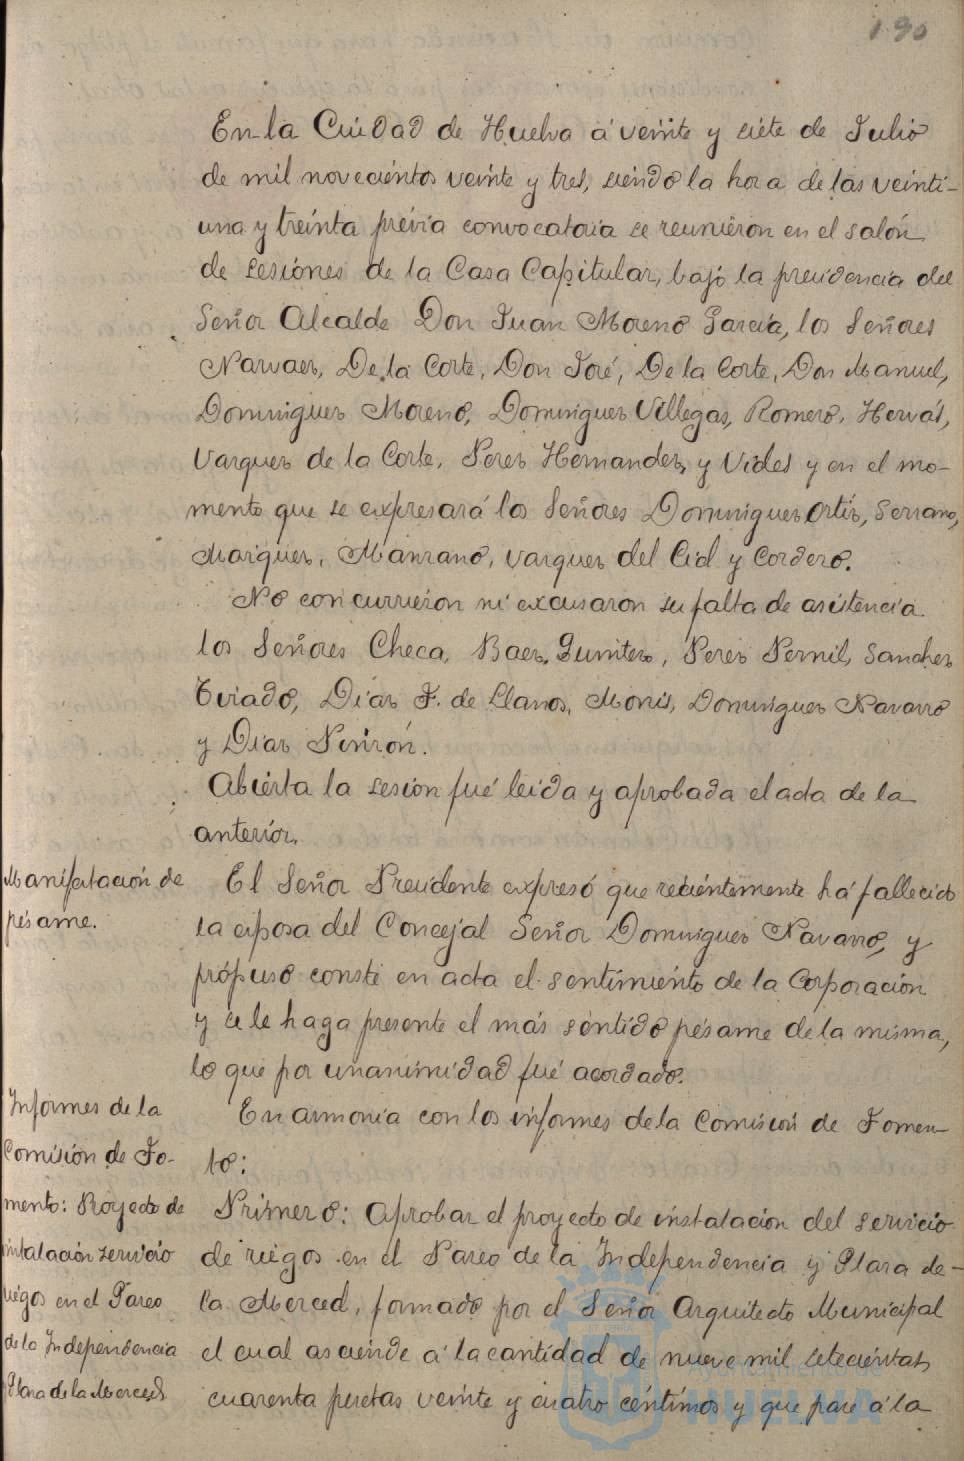 190
En la Ciudad de Huelva á veinte y siete de Julio
de mil novecientos veinte y tres, siendo la hora de las veinti-
una y treinta previa convocatoria se reunieron en el salón
de sesiones de la Casa Capitular, bajo la presidencia del
Señor Alcalde Don Juan Moreno García, los Señores
Narvaez, De la Corte, Don José, De la Corte, Don Manuel,
Dominguez Moreno, Dominguez Villegas, Romero, Hervás,
Vazquez de la Corte, Perez Hernandez, y Vides y en el mo-
mento que se expresará los Señores Dominguez Ortiz, Serrano,
Marquez, Manzano, Vazquez del Cid y Cordero.
No concurrieron ni excusaron su falta de asistencia
los Señores Checa, Baez, Quintero, Perez Pernil, Sanchez
Tirado, Diaz F. de Llanos, Monis, Dominguez Navarro
y Diaz Pinzón.
Abierta la sesión fué leida y aprobada el acta de la
anterior.
Manifestación de
pésame.
El Señor Presidente expresó que recientemente há fallecido
la esposa del Concejal Señor Dominguez Navarro, y
própuso conste en acta el sentimiento de la Corporación
y se le haga presente el más sentido pésame de la misma,
lo que por unanimidad fué acordado.
Informes de la
Comisión de Fo-
mento: Proyecto de
instalación servicio
riegos en el Paseo
de la Independencia
Plaza de la Merced
En armonia con los informes de la Comisión de Fomen-
to:
Primero: Aprobar el proyecto de instalación del servicio
de riegos en el Paseo de la Independencia y Plaza de
la Merced, formado por el Señor Arquitecto Municipal
el cual asciende á la cantidad de nueve mil setecientas
cuarenta pesetas veinte y cuatro céntimos y que pase á la
Ayuntamiento de
HUELVA